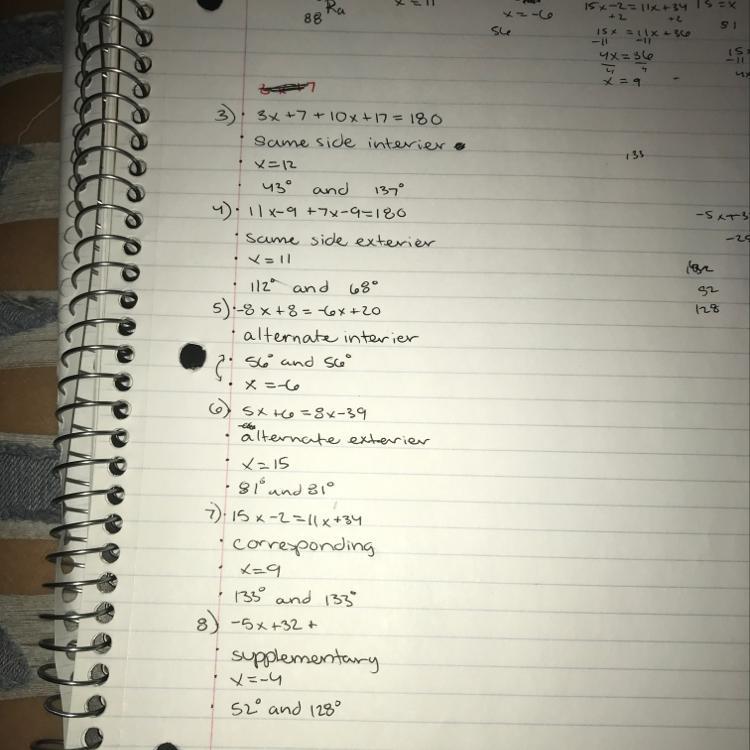 Ra
88
x=11
x=-6
56
15x-2=11x+34
+2 +2
15x=11x+36
-11 -11
4x=36
4 4
x=9
15=x
81
15
-11
4x
3) 3x+7+10x+17=180
same side interier
x=12
43° and 137°
133
4) 11x-9+7x-9=180
same side exterier
x=11
112° and 68°
-5x+3
52
128
5) -8x+8=-6x+20
alternate interier
56° and 56°
x=-6
6) 5x+6=8x-39
alternate exterier
x=15
81° and 81°
7) 15x-2=11x+34
corresponding
x=9
133° and 133°
8) -5x+32+
supplementary
x=-4
52° and 128°